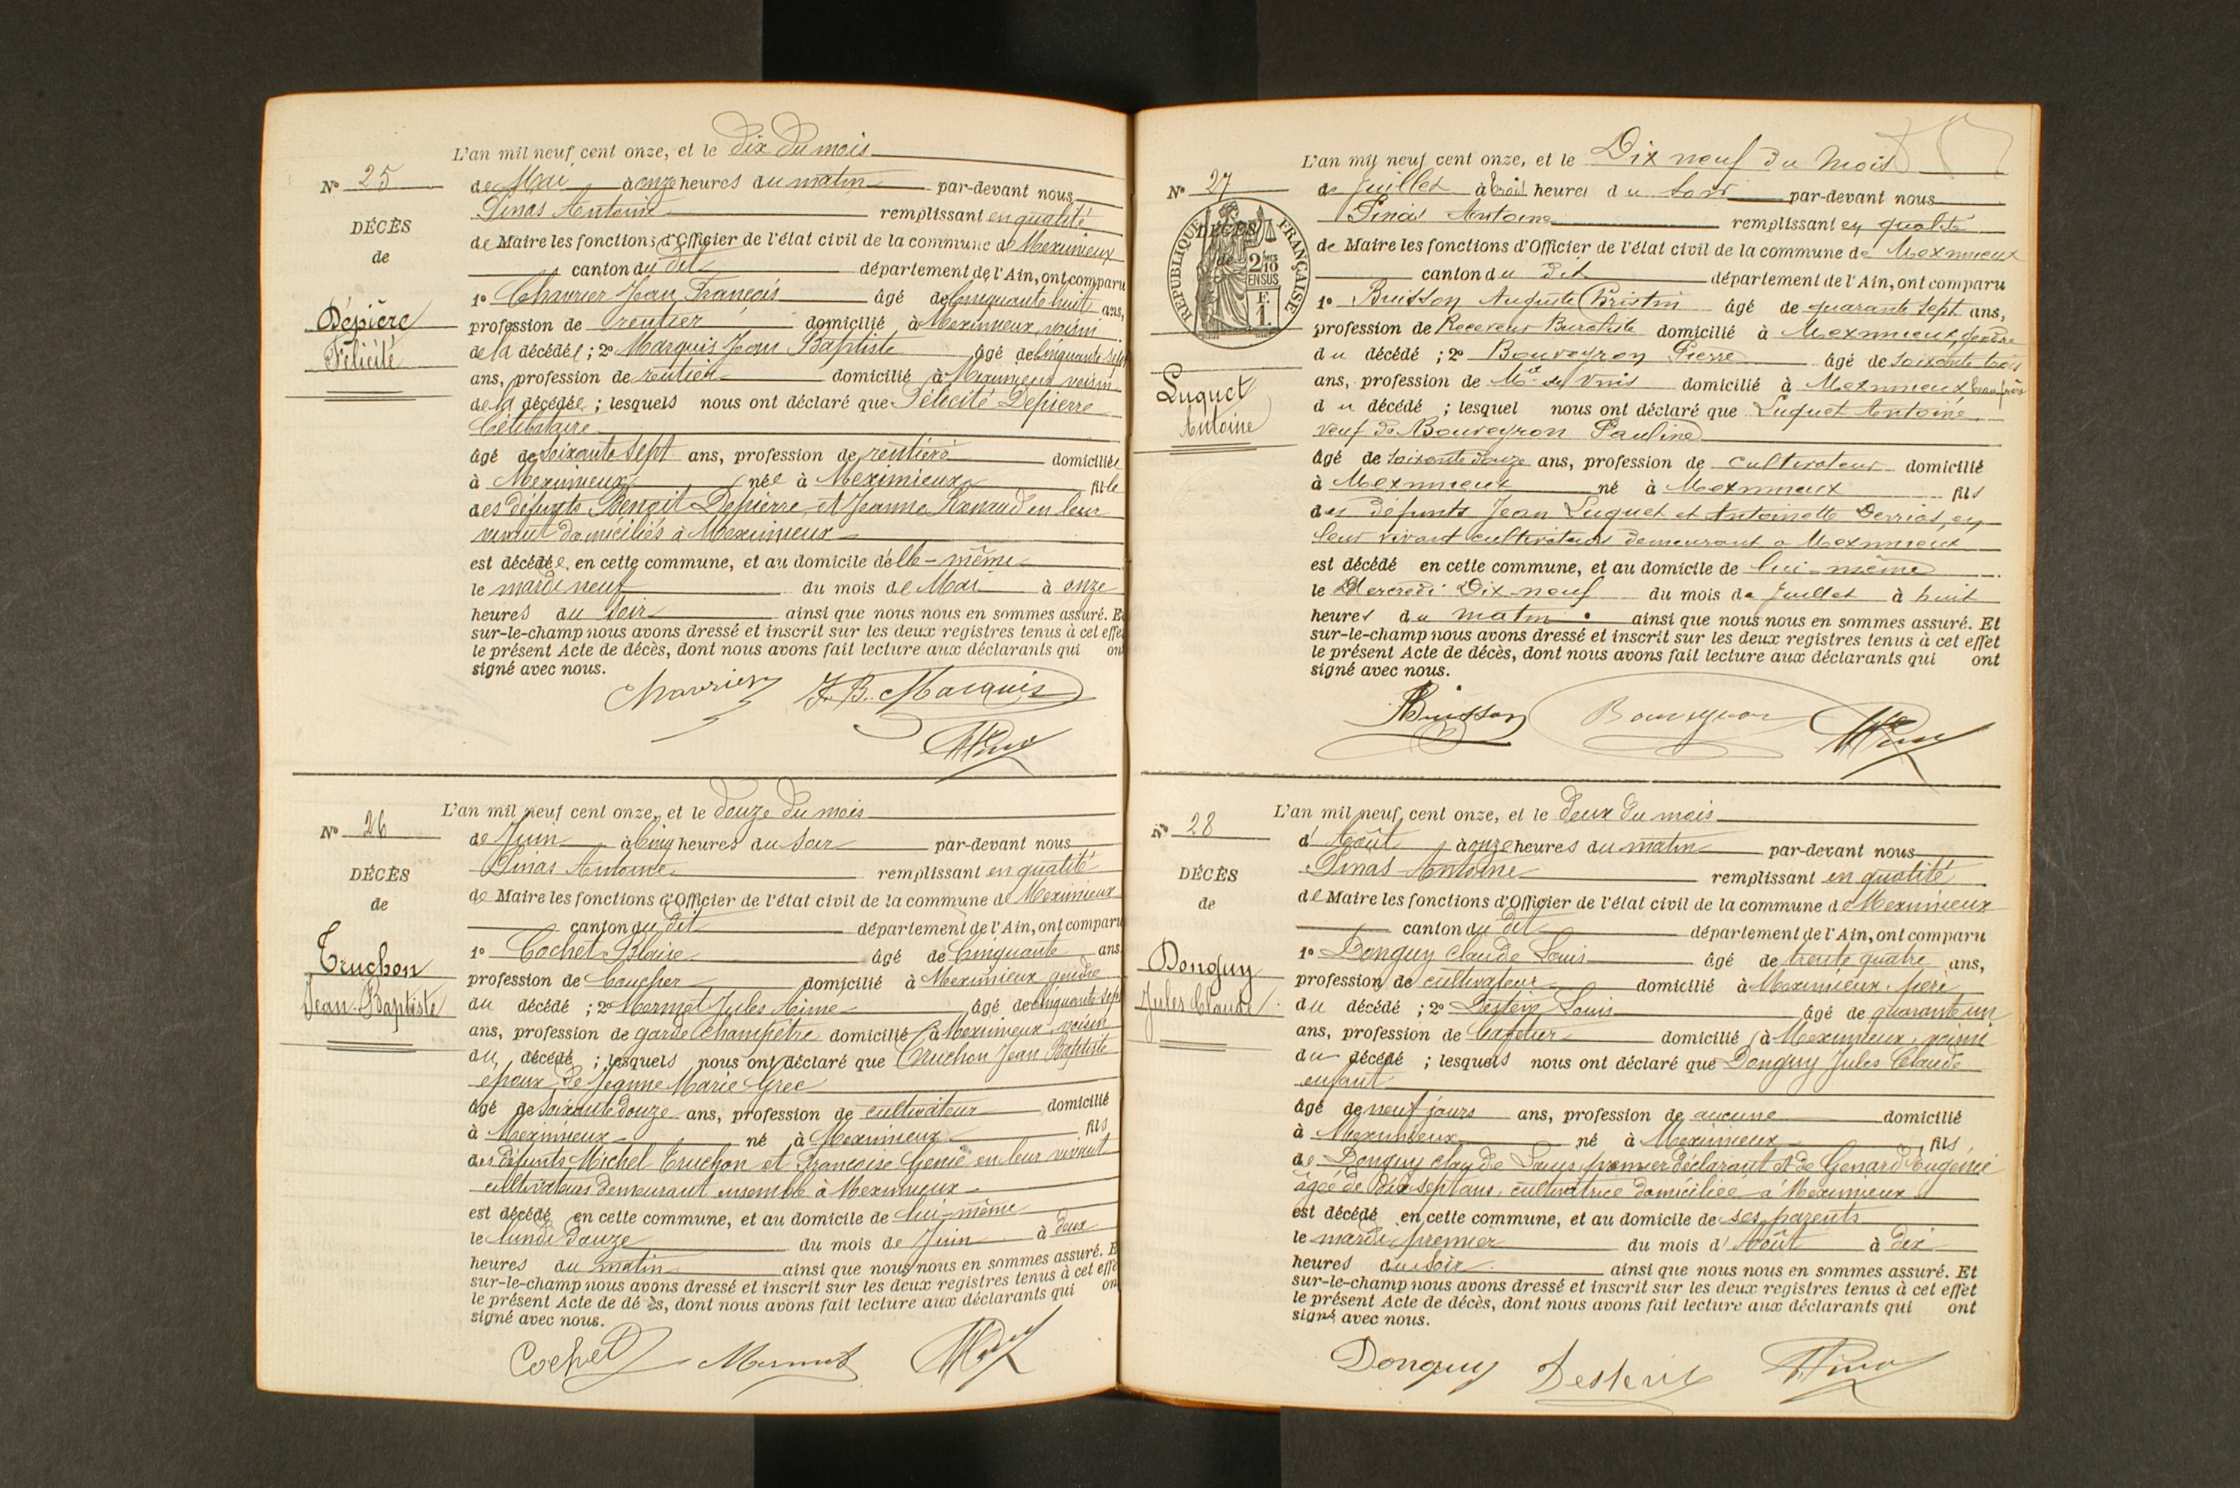 L'an mil neuf cent onze, et le dix du mois
N° 25
de Mai à onze heures du matin par-devant nous
Pinas Antoine remplissant en qualité
DÉCÈS
de Maire les fonctions d'Officier de l'état civil de la commune de Meximieux
de
canton du dit département de l'Ain, ont comparu
1° Chavrier Jean François âgé de Cinquante huit ans,
Dépière
profession de rentier domicilié à Meximieux, voisin
Félicité
de la décédée ; 2° Marquis Jean Baptiste âgé de Cinquante sept
ans, profession de rentier domicilié à Meximieux voisin
de la décédée ; lesquels nous ont déclaré que Félicité Depierre
Célibataire
âgé de soixante sept ans, profession de rentière domiciliée
à Meximieux née à Meximieux fille
des défunts Benoit Depierre et Jeanne Renaud en leur
vivant domiciliés à Meximieux
est décédée en cette commune, et au domicile d'elle-même
le mardi neuf du mois de Mai à onze
heures du soir ainsi que nous nous en sommes assuré. Et
sur-le-champ nous avons dressé et inscrit sur les deux registres tenus à cet effet
le présent Acte de décès, dont nous avons fait lecture aux déclarants qui ont
signé avec nous.
Chavrier J. B. Marquis
L'an mil neuf cent onze, et le douze du mois
N° 26
de Juin à Cinq heures du soir par-devant nous
Pinas Antoine remplissant en qualité
DÉCÈS
de Maire les fonctions d'Officier de l'état civil de la commune de Meximieux
de
canton du dit département de l'Ain, ont comparu
1° Cochet Blaise âgé de Cinquante ans
Truchon
profession de boucher domicilié à Meximieux gendre
Jean-Baptiste
du décédé ; 2° Mermet Jules Aimé âgé de cinquante sept
ans, profession de garde champêtre domicilié à Meximieux, voisin
du décédé ; lesquels nous ont déclaré que Truchon Jean Baptiste
époux de Jeanne Marie Grec
âgé de soixante douze ans, profession de cultivateur domicilié
à Meximieux né à Meximieux fils
des défunts Michel Truchon et Françoise Genie en leur vivant
cultivateurs demeurant ensemble à Meximieux
est décédé en cette commune, et au domicile de lui-même
le lundi douze du mois de Juin à deux
heures du matin ainsi que nous nous en sommes assuré. E
sur-le-champ nous avons dressé et inscrit sur les deux registres tenus à cet effe
le présent Acte de dé ès, dont nous avons fait lecture aux déclarants qui on
signé avec nous.
Cochet Mermet
L'an mil neuf cent onze, et le Dix neuf du Mois
N° 27
de Juillet à trois heures du soir par-devant nous
Pinas Antoine remplissant en qualité
RÉPUBLIQUE FRANÇAISE
DÉCÈS
de Maire les fonctions d'Officier de l'état civil de la commune de Meximieux
de
2/10 EN SUS
canton du dit département de l'Ain, ont comparu
1 F.
1° Buisson Auguste Christin âgé de quarante sept ans,
profession de Receveur Buraliste domicilié à Meximieux, gendre
du décédé ; 2° Bouveyron Pierre âgé de soixante trois
Luquet
ans, profession de Md de Vins domicilié à Meximieux beau frère
Antoine
du décédé ; lesquel nous ont déclaré que Luquet Antoine
veuf de Bouveyron Pauline
âgé de soixante douze ans, profession de cultivateur domicilié
à Meximieux né à Meximieux fils
des défunts Jean Luquet et Antoinette Derriat, en
leur vivant cultivateurs demeurant a Meximieux
est décédé en cette commune, et au domicile de lui-même
le Mercredi Dix-neuf du mois de Juillet à huit
heures du matin ainsi que nous nous en sommes assuré. Et
sur-le-champ nous avons dressé et inscrit sur les deux registres tenus à cet effet
le présent Acte de décès, dont nous avons fait lecture aux déclarants qui ont
signé avec nous.
Buisson Bouveyron
L'an mil neuf cent onze, et le deux du mois
N° 28
d'Août à onze heures du matin par-devant nous
Pinas Antoine remplissant en qualité
DÉCÈS
de Maire les fonctions d'Officier de l'état civil de la commune de Meximieux
de
canton du dit département de l'Ain, ont comparu
1° Donguy Claude Louis âgé de trente quatre ans,
Donguy
profession de cultivateur domicilié à Meximieux, père
Jules Claude
du décédé ; 2° Louis âgé de quarante un
ans, profession de Cafetier domicilié à Meximieux, voisin
du décédé ; lesquels nous ont déclaré que Donguy Jules Claude
enfant
âgé de neuf jours ans, profession de aucune domicilié
à Meximieux né à Meximieux fils
de Donguy Claude Louis premier déclarant et de Genard Eugénie
âgée de dix sept ans, cultivatrice domiciliée à Meximieux
est décédé en cette commune, et au domicile de ses parents
le mardi premier du mois d'Août à dix
heures du soir ainsi que nous nous en sommes assuré. Et
sur-le-champ nous avons dressé et inscrit sur les deux registres tenus à cet effet
le présent Acte de décès, dont nous avons fait lecture aux déclarants qui ont
signé avec nous.
Donguy